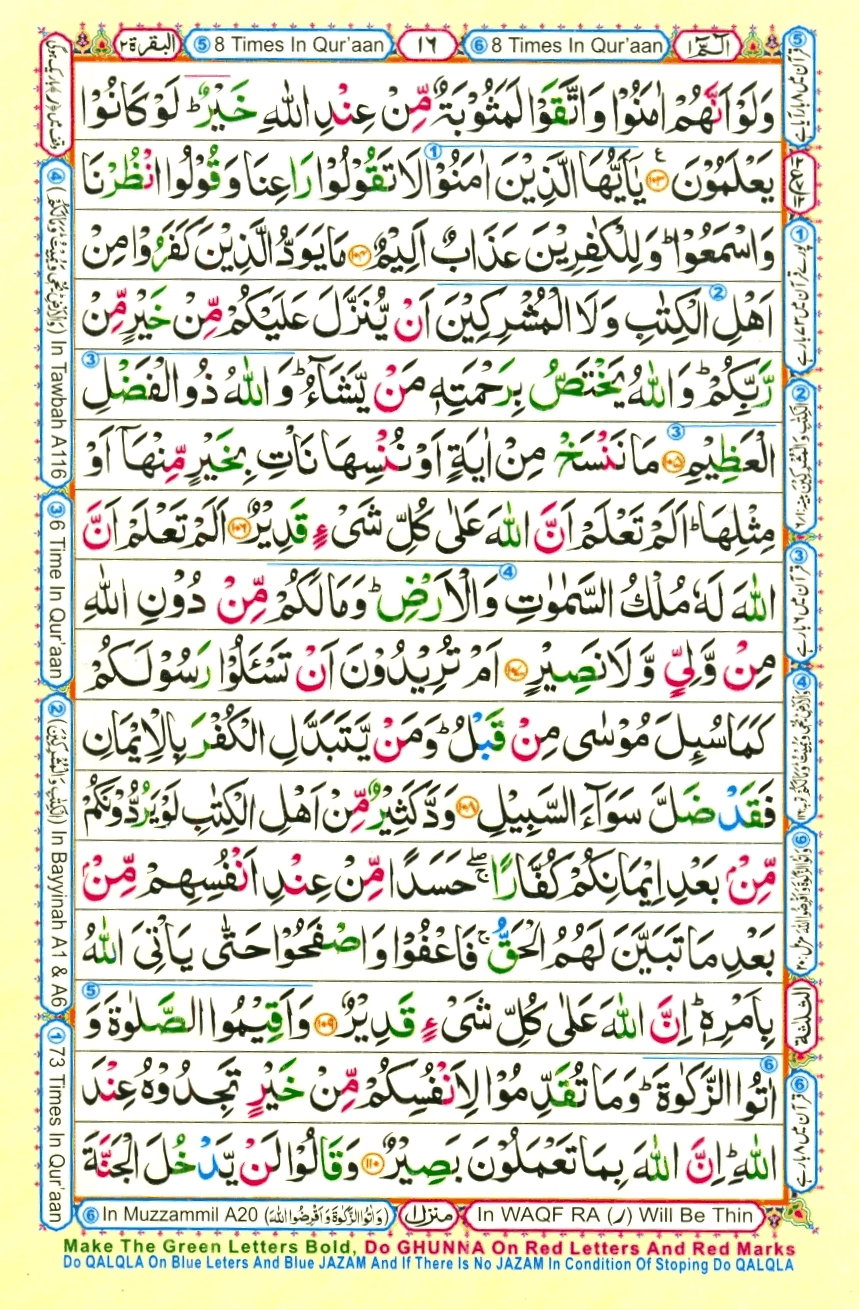 البقرة ٢
⑤ 8 Times In Qur'aan
١٦
⑥ 8 Times In Qur'aan
الٓمّٓ ١
وَلَوْ اَنَّهُمْ اٰمَنُوْا وَاتَّقَوْا لَمَثُوْبَةٌ مِّنْ عِنْدِ اللّٰهِ خَيْرٌ ؕ لَوْ كَانُوْا
يَعْلَمُوْنَ ۧ‏﴿۱۰۳﴾ يٰٓاَيُّهَا الَّذِيْنَ اٰمَنُوْا ① لَا تَقُوْلُوْا رَاعِنَا وَقُوْلُوا انْظُرْنَا
وَاسْمَعُوْا ؕ وَلِلْكٰفِرِيْنَ عَذَابٌ اَلِيْمٌ ﴿۱۰۴﴾ مَا يَوَدُّ الَّذِيْنَ كَفَرُوْا مِنْ
اَهْلِ الْكِتٰبِ ② وَلَا الْمُشْرِكِيْنَ اَنْ يُّنَزَّلَ عَلَيْكُمْ مِّنْ خَيْرٍ مِّنْ
رَّبِّكُمْ ؕ وَاللّٰهُ يَخْتَصُّ بِرَحْمَتِهٖ مَنْ يَّشَآءُ ؕ وَاللّٰهُ ذُو الْفَضْلِ ③
الْعَظِيْمِ ③ ﴿۱۰۵﴾ مَا نَنْسَخْ مِنْ اٰيَةٍ اَوْ نُنْسِهَا نَاْتِ بِخَيْرٍ مِّنْهَآ اَوْ
مِثْلِهَا ؕ اَلَمْ تَعْلَمْ اَنَّ اللّٰهَ عَلٰى كُلِّ شَىْءٍ قَدِيْرٌ ﴿۱۰۶﴾ اَلَمْ تَعْلَمْ اَنَّ
اللّٰهَ لَهٗ مُلْكُ السَّمٰوٰتِ ④ وَالْاَرْضِ ؕ وَمَا لَكُمْ مِّنْ دُوْنِ اللّٰهِ
مِنْ وَّلِيٍّ وَّلَا نَصِيْرٍ ﴿۱۰۷﴾ اَمْ تُرِيْدُوْنَ اَنْ تَسْـَٔلُوْا رَسُوْلَكُمْ
كَمَا سُئِلَ مُوْسٰى مِنْ قَبْلُ ؕ وَمَنْ يَّتَبَدَّلِ الْكُفْرَ بِالْاِيْمَانِ
فَقَدْ ضَلَّ سَوَآءَ السَّبِيْلِ ﴿۱۰۸﴾ وَدَّ كَثِيْرٌ مِّنْ اَهْلِ الْكِتٰبِ لَوْ يَرُدُّوْنَكُمْ
مِّنْۢ بَعْدِ اِيْمَانِكُمْ كُفَّارًا ۖۚ حَسَدًا مِّنْ عِنْدِ اَنْفُسِهِمْ مِّنْۢ
بَعْدِ مَا تَبَيَّنَ لَهُمُ الْحَقُّ ۚ فَاعْفُوْا وَاصْفَحُوْا حَتّٰى يَاْتِيَ اللّٰهُ
بِاَمْرِهٖ ؕ اِنَّ اللّٰهَ عَلٰى كُلِّ شَىْءٍ قَدِيْرٌ ﴿۱۰۹﴾ وَاَقِيْمُوا الصَّلٰوةَ وَ ⑤
اٰتُوا الزَّكٰوةَ ⑥ ؕ وَمَا تُقَدِّمُوْا لِاَنْفُسِكُمْ مِّنْ خَيْرٍ تَجِدُوْهُ عِنْدَ
اللّٰهِ ؕ اِنَّ اللّٰهَ بِمَا تَعْمَلُوْنَ بَصِيْرٌ ﴿۱۱۰﴾ وَقَالُوْا لَنْ يَّدْخُلَ الْجَنَّةَ
④ In Tawbah A116
③ 6 Time In Qur'aan
② (الْكِتٰبِ وَالْمُشْرِكِيْنَ) In Bayyinah A1 & A6
① 73 Times In Qur'aan
الثلثة
⑥ In Muzzammil A20 (وَاٰتُوا الزَّكٰوةَ وَاَقْرِضُوا اللّٰهَ)
منزل ١
In WAQF RA (ر) Will Be Thin
Make The Green Letters Bold, Do GHUNNA On Red Letters And Red Marks
Do QALQLA On Blue Leters And Blue JAZAM And If There Is No JAZAM In Condition Of Stoping Do QALQLA